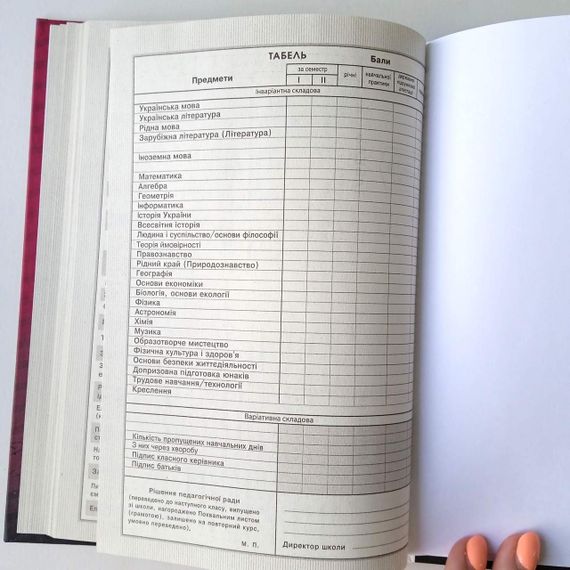 ТАБЕЛЬ
Бали
Предмети
за семестр
I
II
річні
навчальної
практики
Інваріантна складова
Українська мова
Українська література
Рідна мова
Зарубіжна література (Література)
Іноземна мова
Математика
Алгебра
Геометрія
Інформатика
Історія України
Всесвітня історія
Людина і суспільство/основи філософії
Теорія ймовірності
Правознавство
Рідний край (Природознавство)
Географія
Основи економіки
Біологія, основи екології
Фізика
Астрономія
Хімія
Музика
Образотворче мистецтво
Фізична культура і здоров'я
Основи безпеки життєдіяльності
Допризовна підготовка юнаків
Трудове навчання/технології
Креслення
Варіативна складова
Кількість пропущених навчальних днів
З них через хворобу
Підпис класного керівника
Підпис батьків
Рішення педагогічної ради
(переведено до наступного класу, випущено
зі школи, нагороджено Похвальним листом
(грамотою), залишено на повторний курс,
умовно переведено),
М. П.
Директор школи